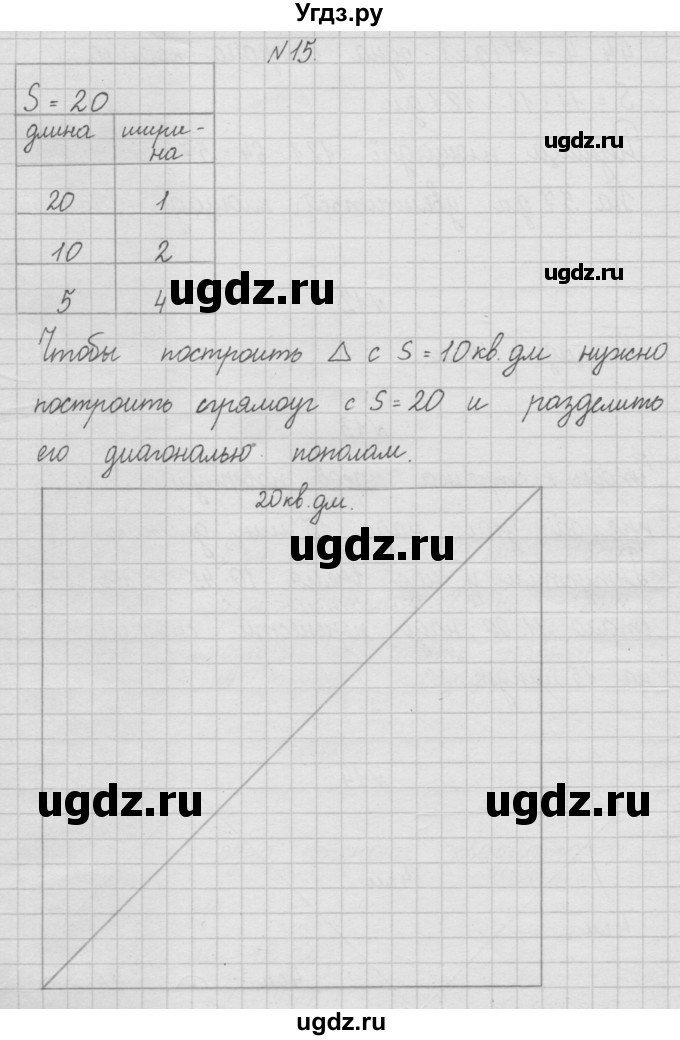 Угдз.ру
N15.
S = 20
длина шири-
на
ugdz.ru
20 1
10 2
ugdz.ru
ugdz.ru
5 4
Чтобы построить Δ с S = 10кв.дм нужно
построить прямоуг с S = 20 и разделить
его диагональю пополам.
20кв.дм.
ugdz.ru
ugdz.ru
ugdz.ru
ugdz.ru